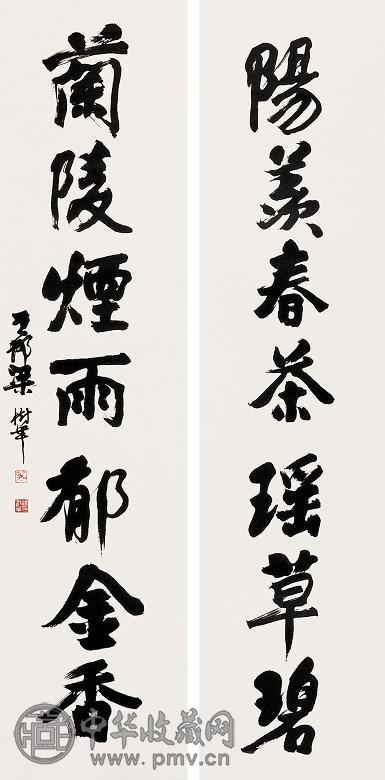 陽羨春茶瑤草碧
蘭陵煙雨郁金香
梁樹年
中华收藏网
www.pmv.cn